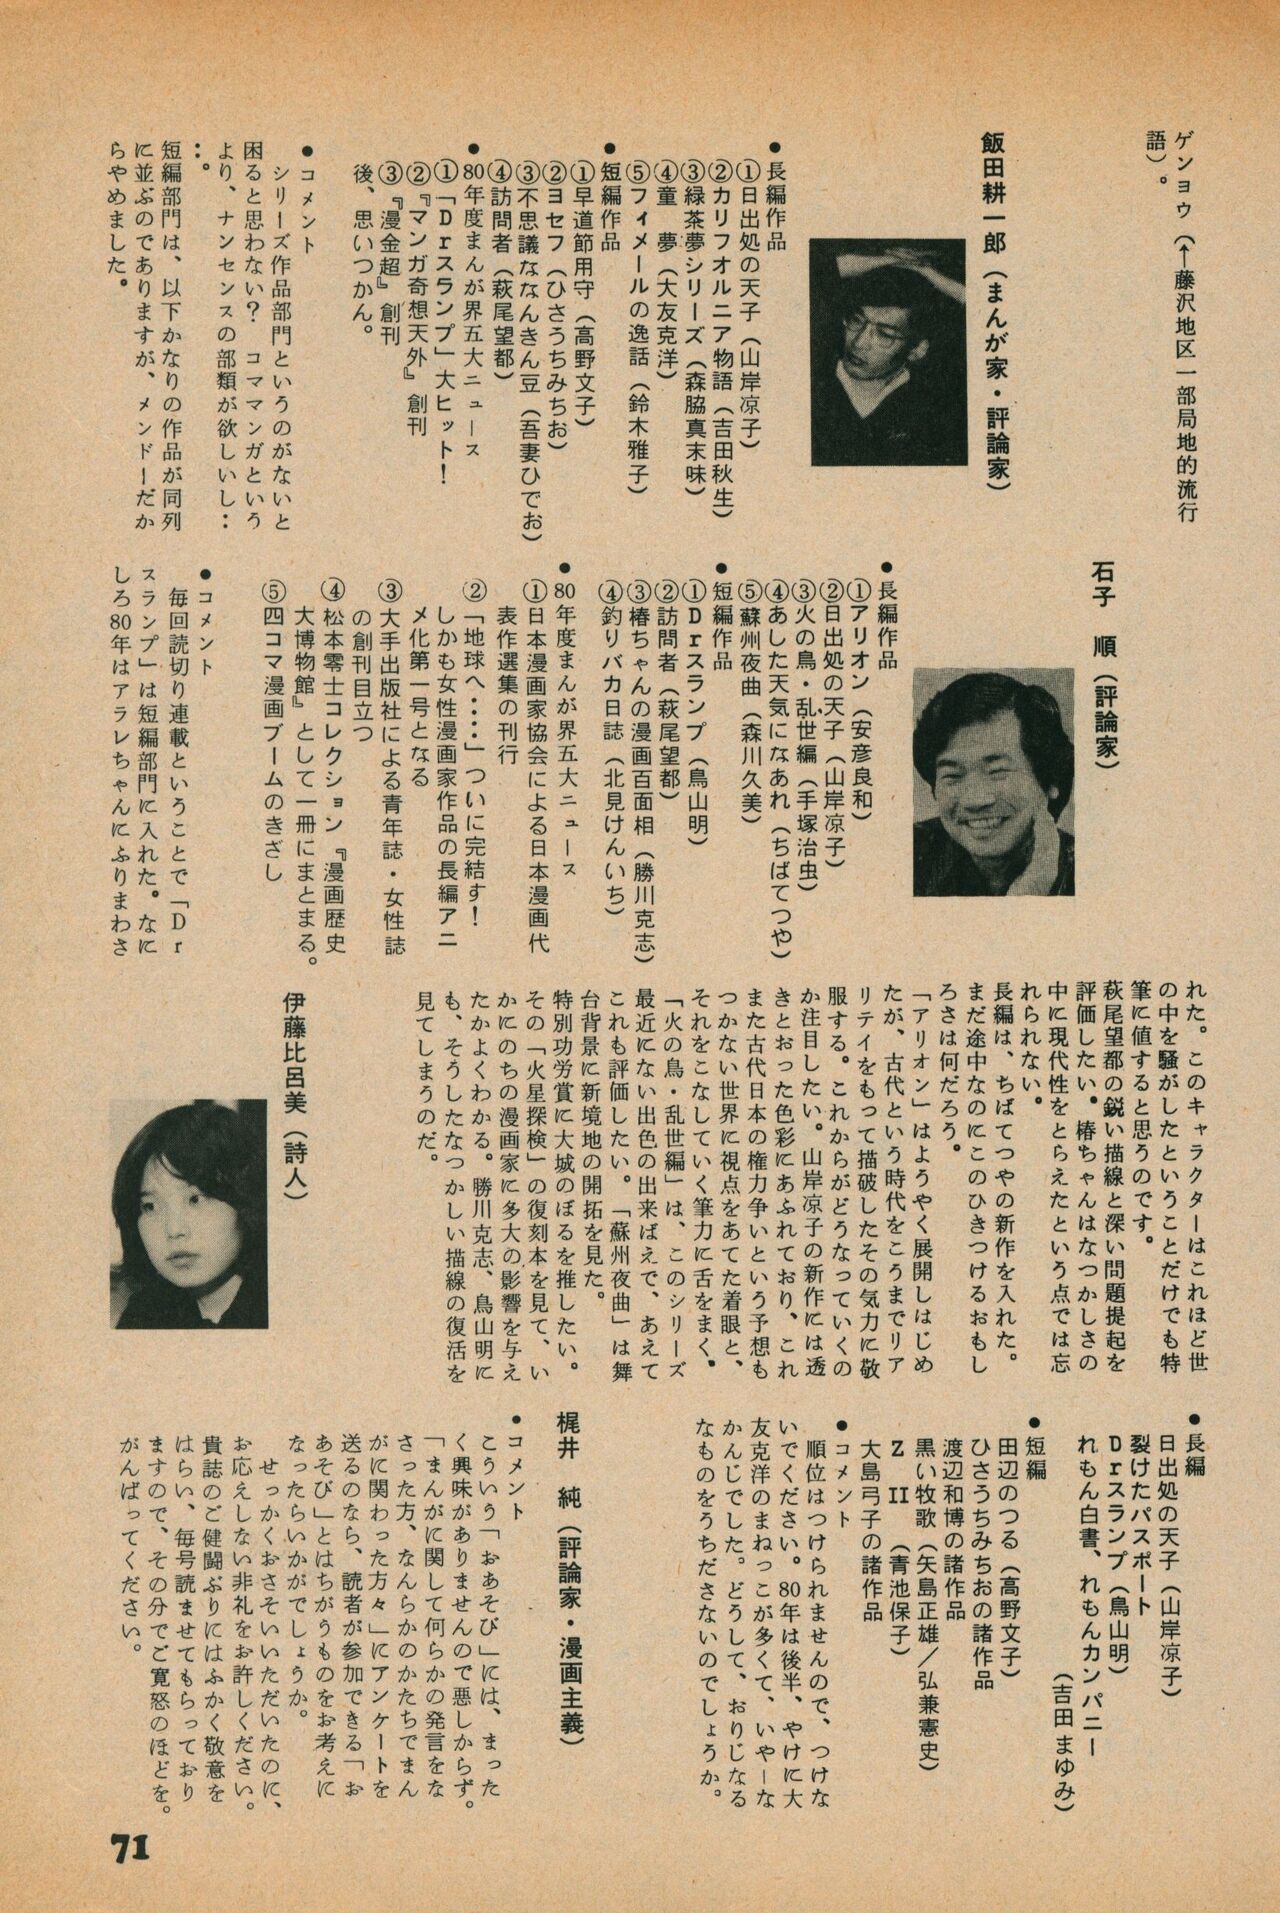 ゲンョウ（←藤沢地区一部局地的流行
語）。
飯田耕一郎（まんが家・評論家）
●長編作品
①日出処の天子（山岸凉子）
②カリフオルニア物語（吉田秋生）
③緑茶夢シリーズ（森脇真末味）
④童　夢（大友克洋）
⑤フィメールの逸話（鈴木雅子）
●短編作品
①早道節用守（高野文子）
②ヨセフ（ひさうちみちお）
③不思議ななんきん豆（吾妻ひでお）
④訪問者（萩尾望都）
●80年度まんが界五大ニュース
①「Drスランプ」大ヒット！
②『マンガ奇想天外』創刊
③『漫金超』創刊
後、思いつかん。
●コメント
シリーズ作品部門というのがないと
困ると思わない？　コママンガという
より、ナンセンスの部類が欲しいし‥
‥。
短編部門は、以下かなりの作品が同列
に並ぶのでありますが、メンドーだか
らやめました。
石子　順（評論家）
●長編作品
①アリオン（安彦良和）
②日出処の天子（山岸凉子）
③火の鳥・乱世編（手塚治虫）
④あした天気になあれ（ちばてつや）
⑤蘇州夜曲（森川久美）
●短編作品
①Drスランプ（鳥山明）
②訪問者（萩尾望都）
③椿ちゃんの漫画百面相（勝川克志）
④釣りバカ日誌（北見けんいち）
●80年度まんが界五大ニュース
①日本漫画家協会による日本漫画代
表作選集の刊行
②「地球へ‥‥」ついに完結す！
しかも女性漫画家作品の長編アニ
メ化第一号となる
③大手出版社による青年誌・女性誌
の創刊目立つ
④松本零士コレクション『漫画歴史
大博物館』として一冊にまとまる。
⑤四コマ漫画ブームのきざし
●コメント
毎回読切り連載ということで「Dr
スランプ」は短編部門に入れた。なに
しろ80年はアラレちゃんにふりまわさ
れた。このキャラクターはこれほど世
の中を騒がしたということだけでも特
筆に値すると思うのです。
萩尾望都の鋭い描線と深い問題提起を
評価したい。椿ちゃんはなつかしさの
中に現代性をとらえたという点では忘
れられない。
長編は、ちばてつやの新作を入れた。
まだ途中なのにこのひきつけるおもし
ろさは何だろう。
「アリオン」はようやく展開しはじめ
たが、古代という時代をこうまでリア
リテイをもって描破したその気力に敬
服する。これからがどうなっていくの
か注目したい。山岸凉子の新作には透
きとおった色彩にあふれており、これ
また古代日本の権力争いという予想も
つかない世界に視点をあてた着眼と、
それをこなしていく筆力に舌をまく。
「火の鳥・乱世編」は、このシリーズ
最近にない出色の出来ばえで、あえて
これも評価したい。「蘇州夜曲」は舞
台背景に新境地の開拓を見た。
特別功労賞に大城のぼるを推したい。
その「火星探検」の復刻本を見て、い
かにのちの漫画家に多大の影響を与え
たかよくわかる。勝川克志、鳥山明に
も、そうしたなつかしい描線の復活を
見てしまうのだ。
伊藤比呂美（詩人）
●長編
日出処の天子（山岸凉子）
裂けたパスポート
Drスランプ（鳥山明）
れもん白書、れもんカンパニー
（吉田まゆみ）
●短編
田辺のつる（高野文子）
ひさうちみちおの諸作品
渡辺和博の諸作品
黒い牧歌（矢島正雄／弘兼憲史）
Z　II　（青池保子）
大島弓子の諸作品
●コメント
順位はつけられませんので、つけな
いでください。80年は後半、やけに大
友克洋のまねっこが多くて、いやーな
かんじでした。どうして、おりじなる
なものをうちださないのでしょうか。
梶井　純（評論家・漫画主義）
●コメント
こういう「おあそび」には、まった
く興味がありませんので悪しからず。
「まんがに関して何らかの発言をな
さった方、なんらかのかたちでまん
がに関わった方々」にアンケートを
送るのなら、読者が参加できる「お
あそび」とはちがうものをお考えに
なったらいかがでしょうか。
せっかくおさそいいただいたのに、
お応えしない非礼をお許しください。
貴誌のご健闘ぶりにはふかく敬意を
はらい、毎号読ませてもらっており
ますので、その分でご寛怒のほどを。
がんばってください。
71